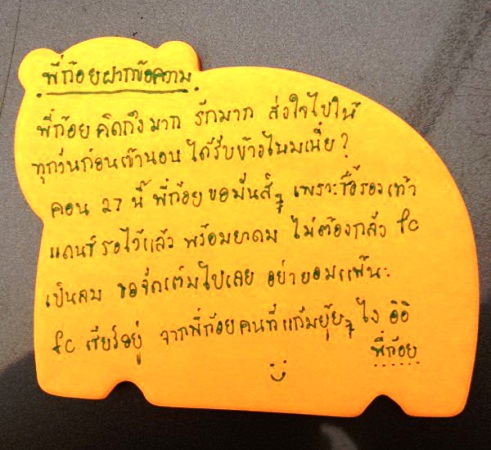 พี่ก้อยฝากข้อความ
พี่ก้อย คิดถึงมาก รักมาก ส่งใจไปให้
ทุกวันก่อนเข้านอน ได้รับบ้างไหมเนี่ย?
คอน 27 นี้ พี่ก้อย ขอมันส์ๆ เพราะซื้อรองเท้า
แดนซ์ รอไว้แล้ว พร้อมยาดม ไม่ต้องกลัว fc
เป็นลม ขอจัดเต็มไปเลย อย่ายอมแพ้นะ
fc เชียร์อยู่ จากพี่ก้อยคนที่แก้มยุ้ยๆ ไง อิอิ
พี่ก้อย